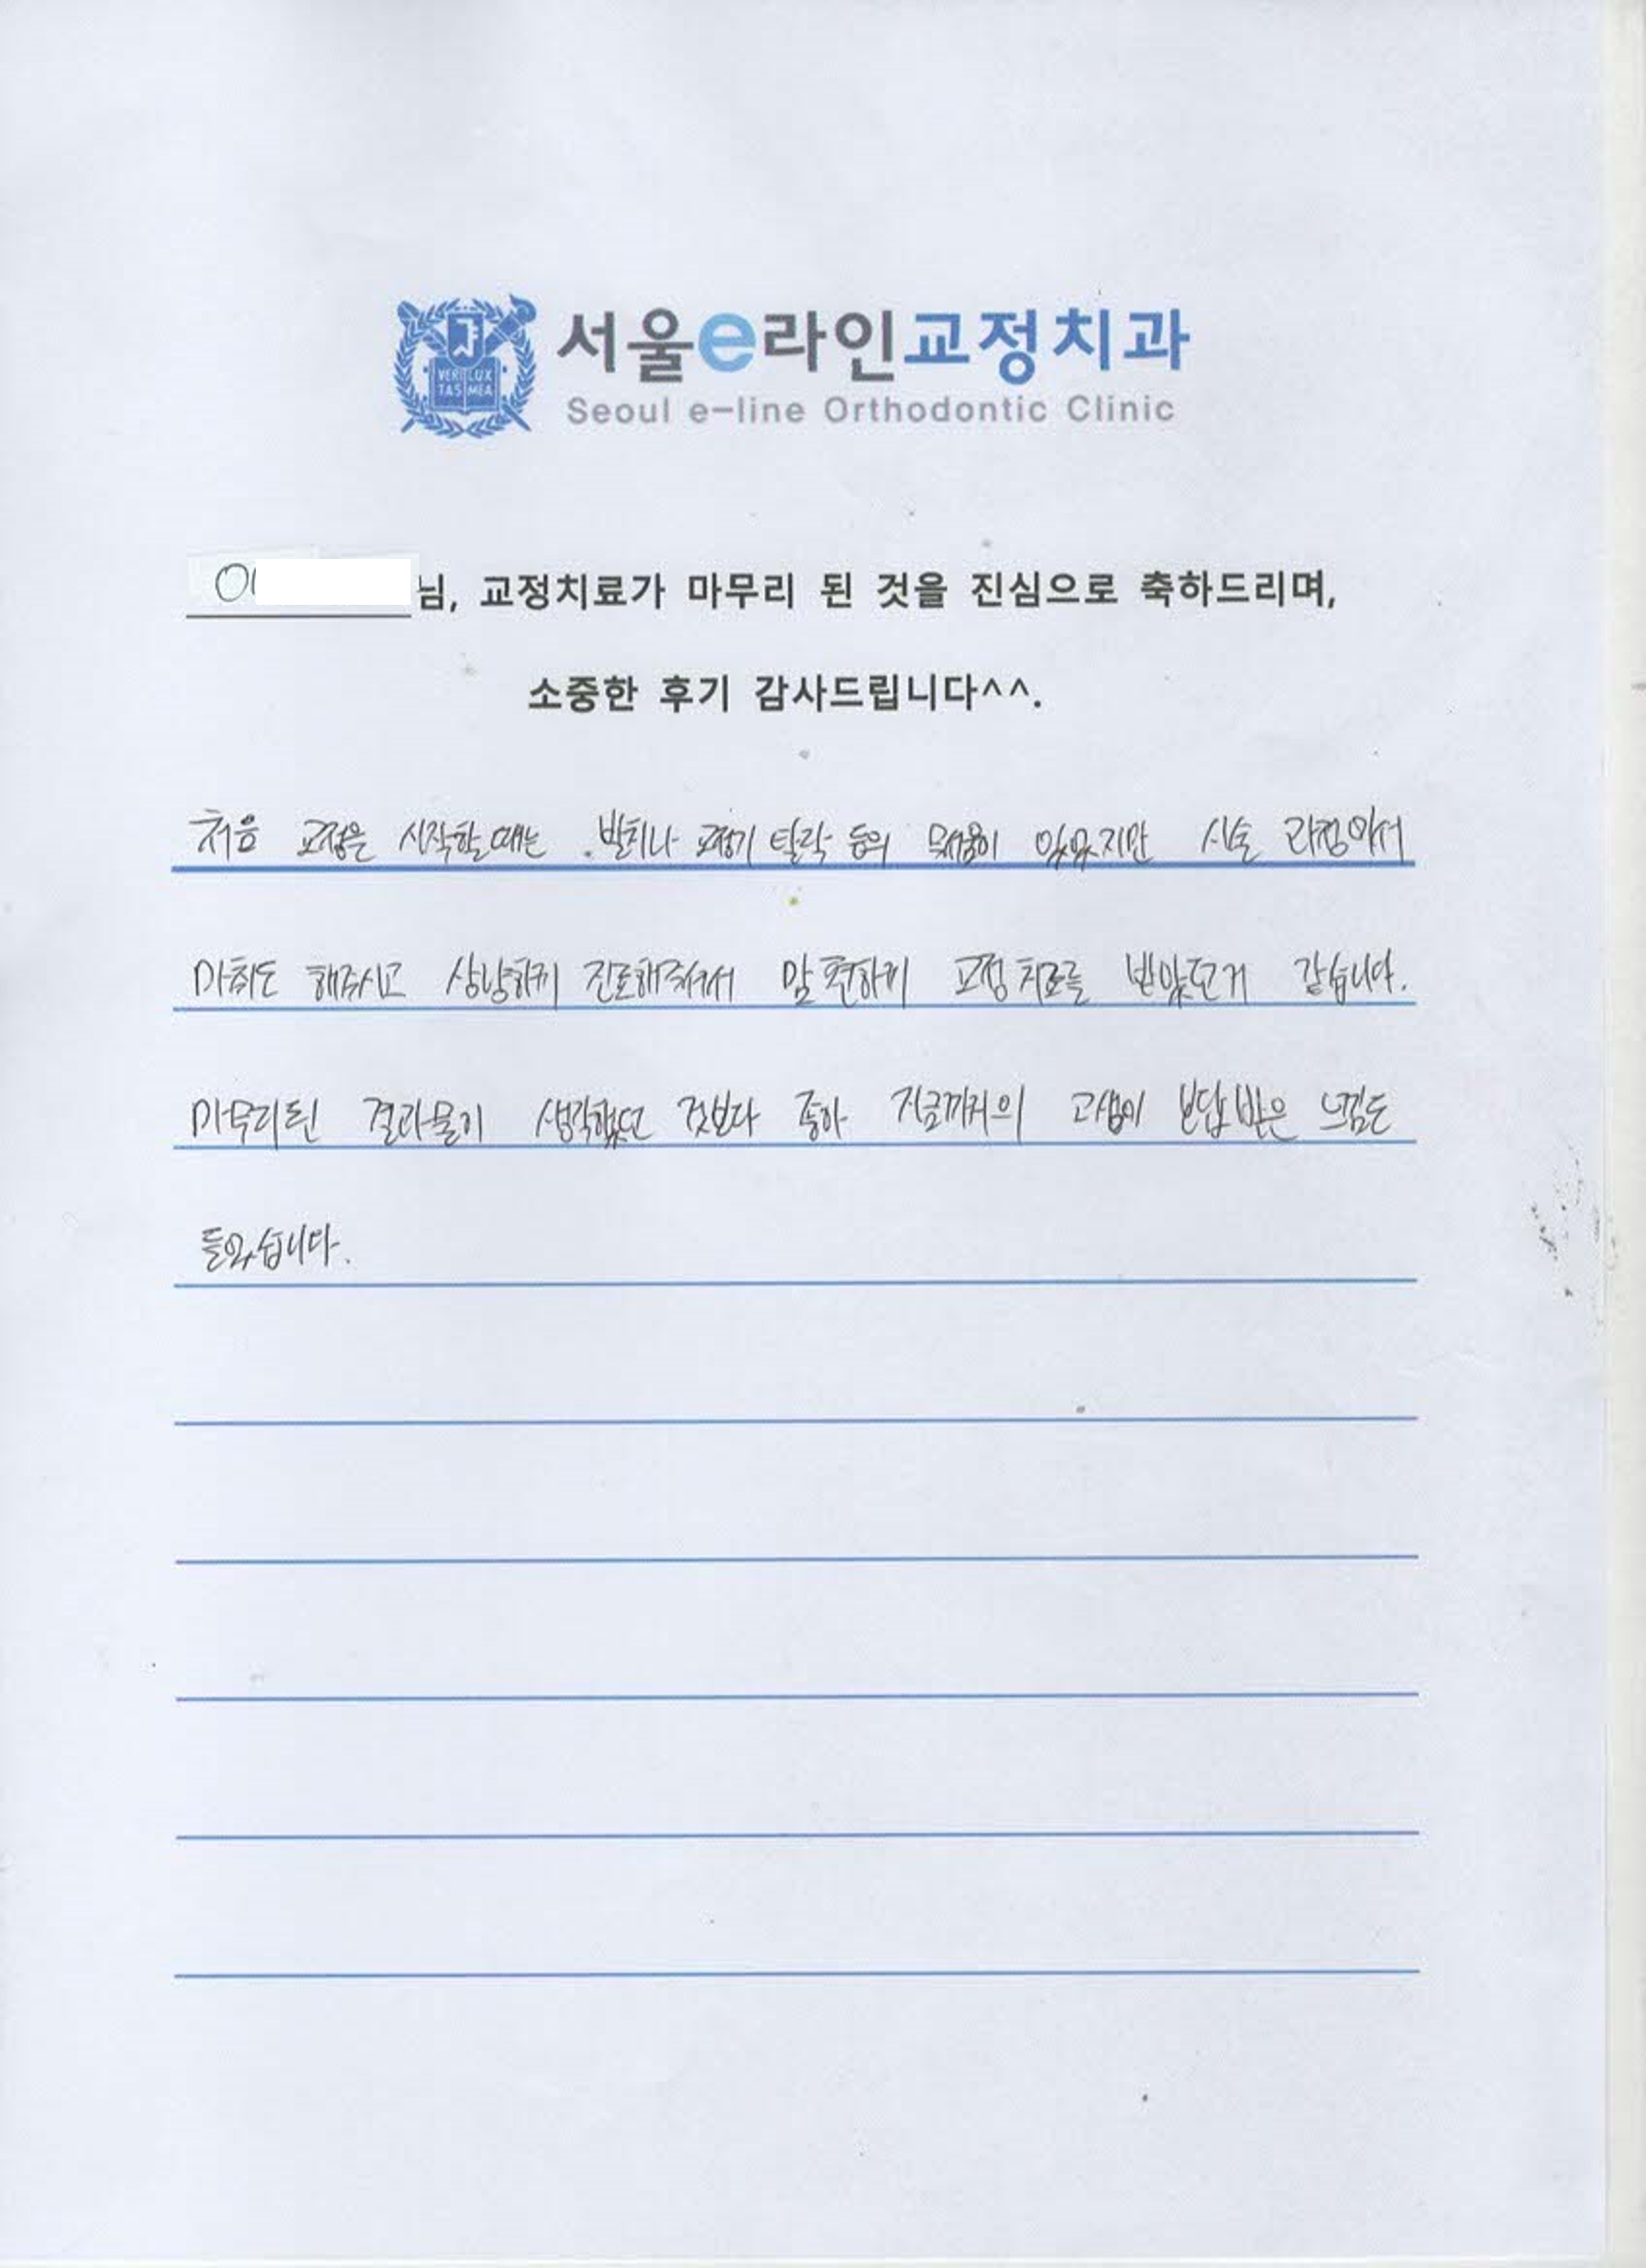 서울e라인교정치과
Seoul e-line Orthodontic Clinic
VERI LUX
TAS MEA
님, 교정치료가 마무리 된 것을 진심으로 축하드리며,
소중한 후기 감사드립니다^^.
처음 교정은 시작할때는 발치나 교정기 탈락 등의 무서움이 있었지만 시술 과정에서
마취도 해주시고 상냥하게 진료해주셔서 맘 편하게 교정치료를 받았던거 같습니다.
마무리된 결과물이 생각했던 것보다 좋아 지금까지의 고생이 보답 받은 느낌도
들었습니다.